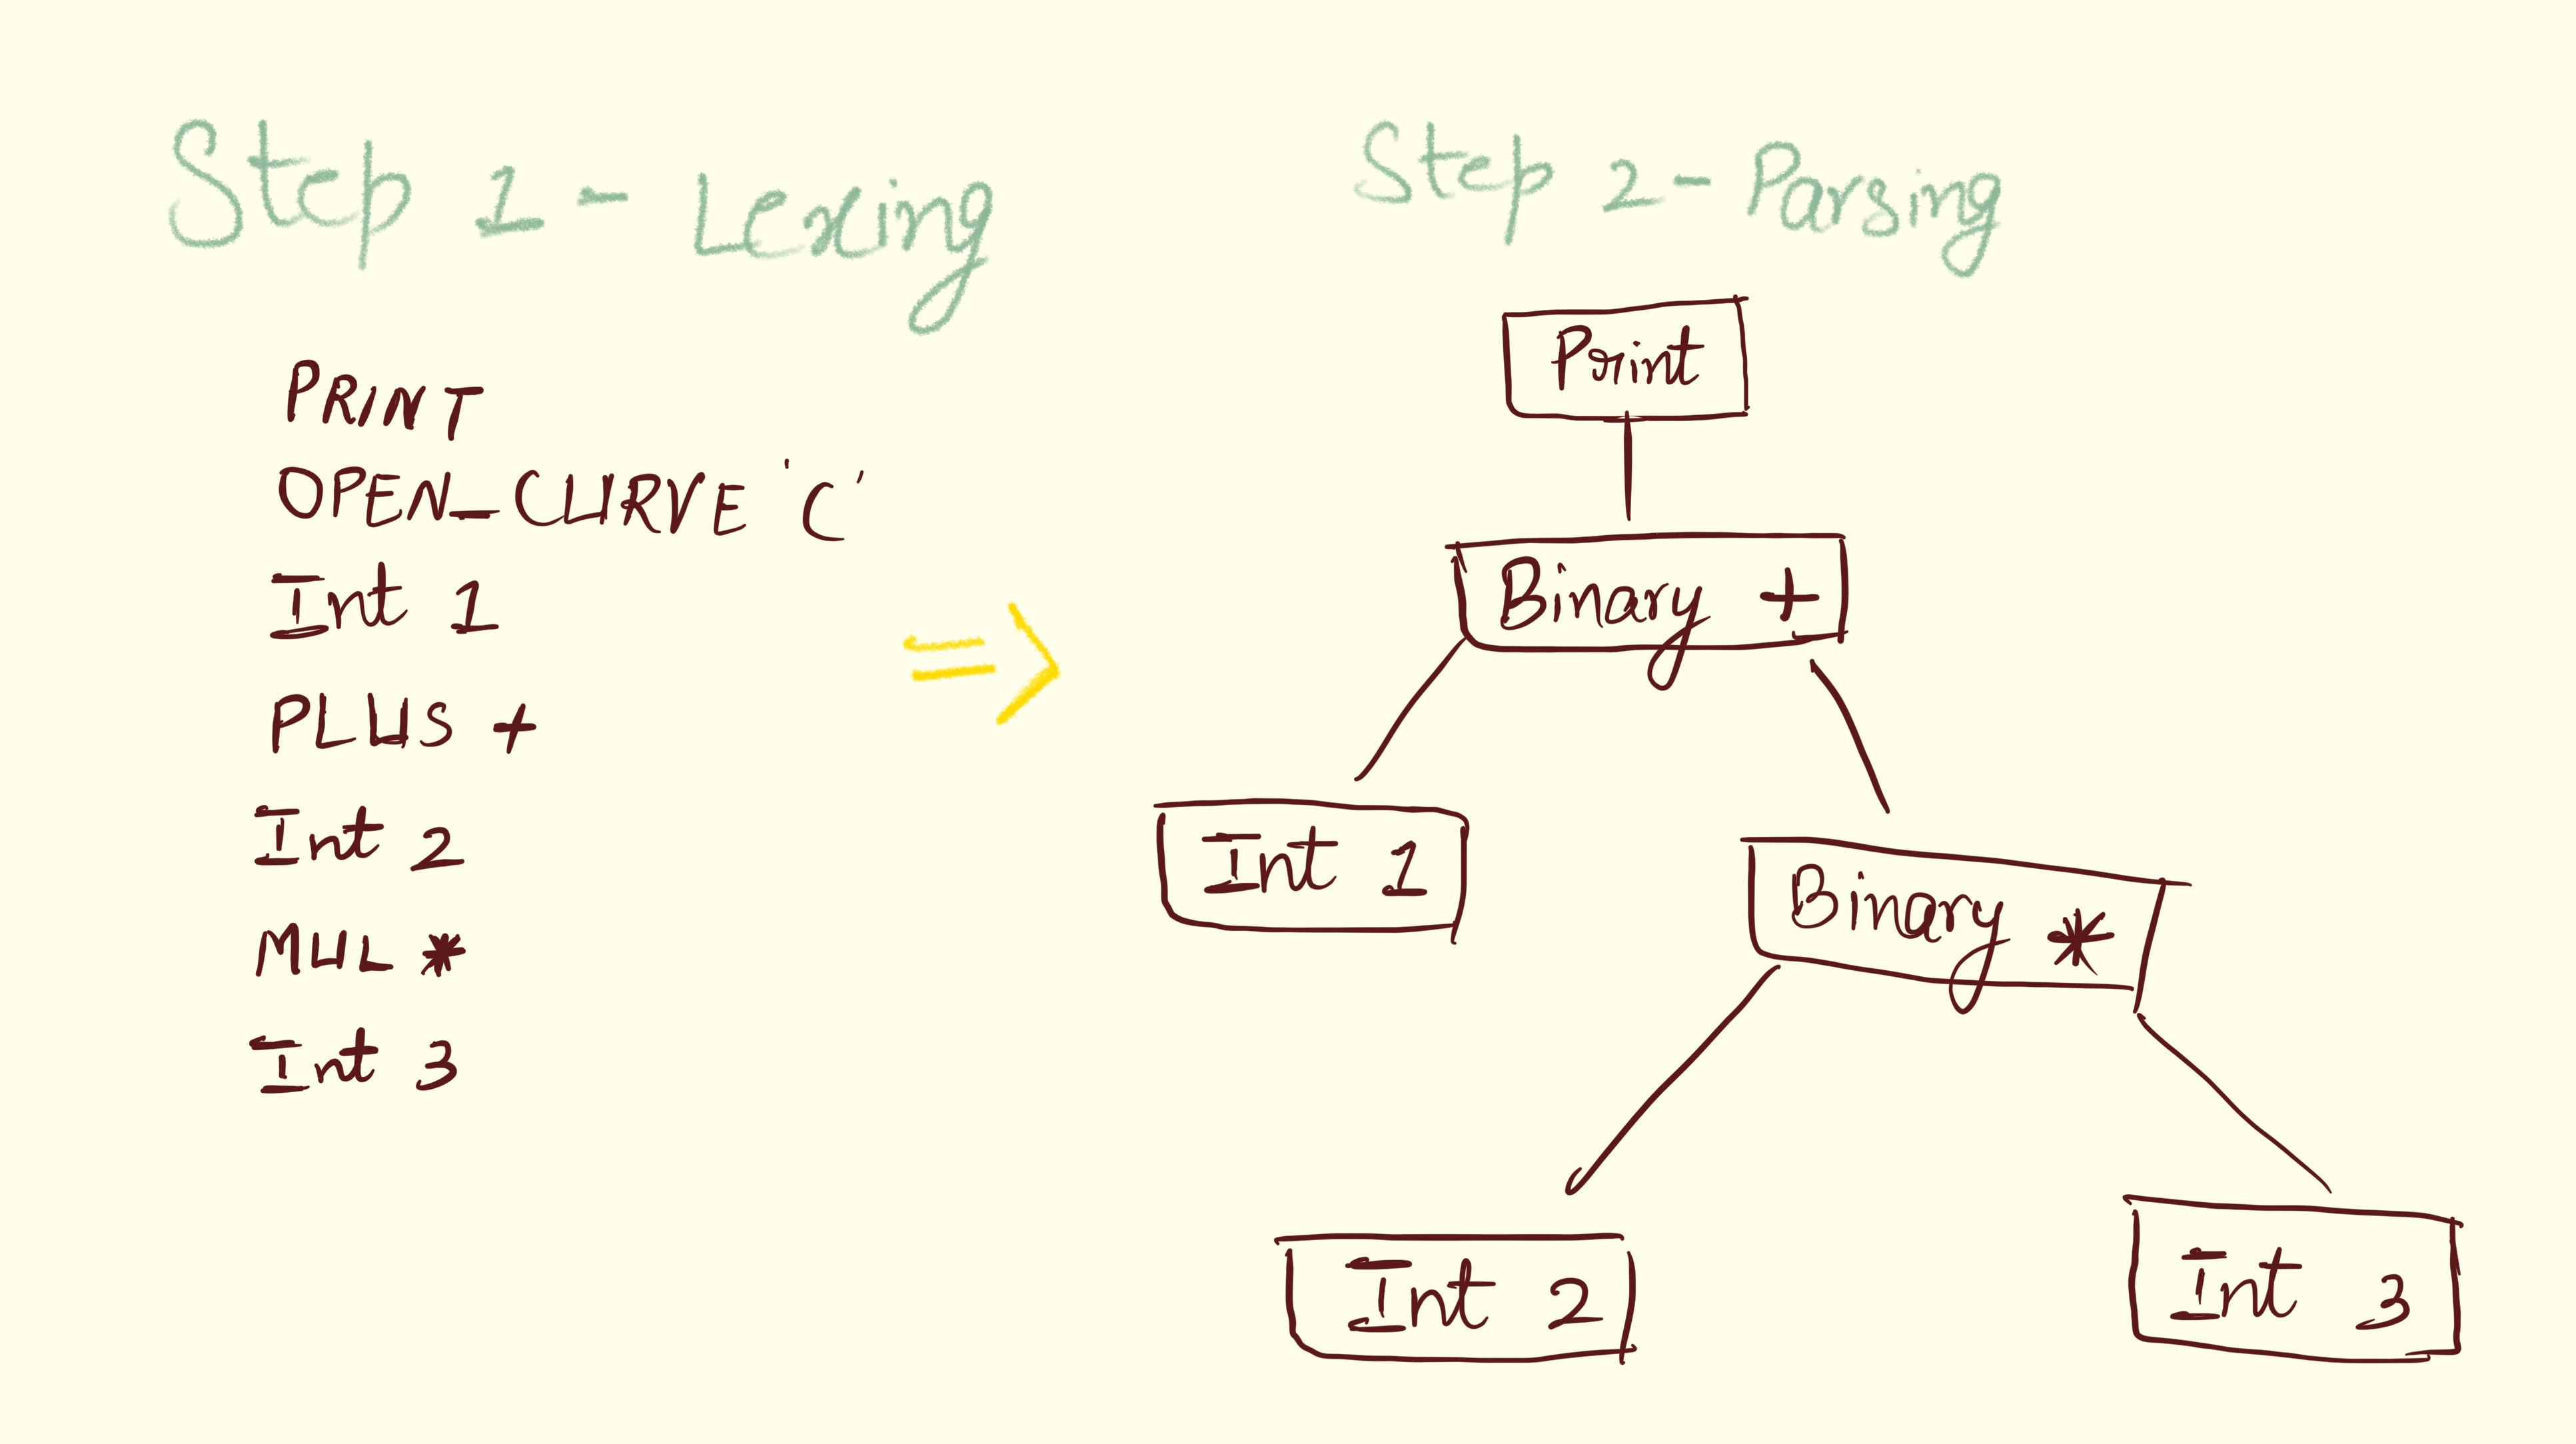 Step 1 - Lexing
PRINT
OPEN_CURVE '('
Int 1
PLUS +
Int 2
MUL *
Int 3
=>
Step 2 - Parsing
Print
Binary +
Int 1
Binary *
Int 2
Int 3